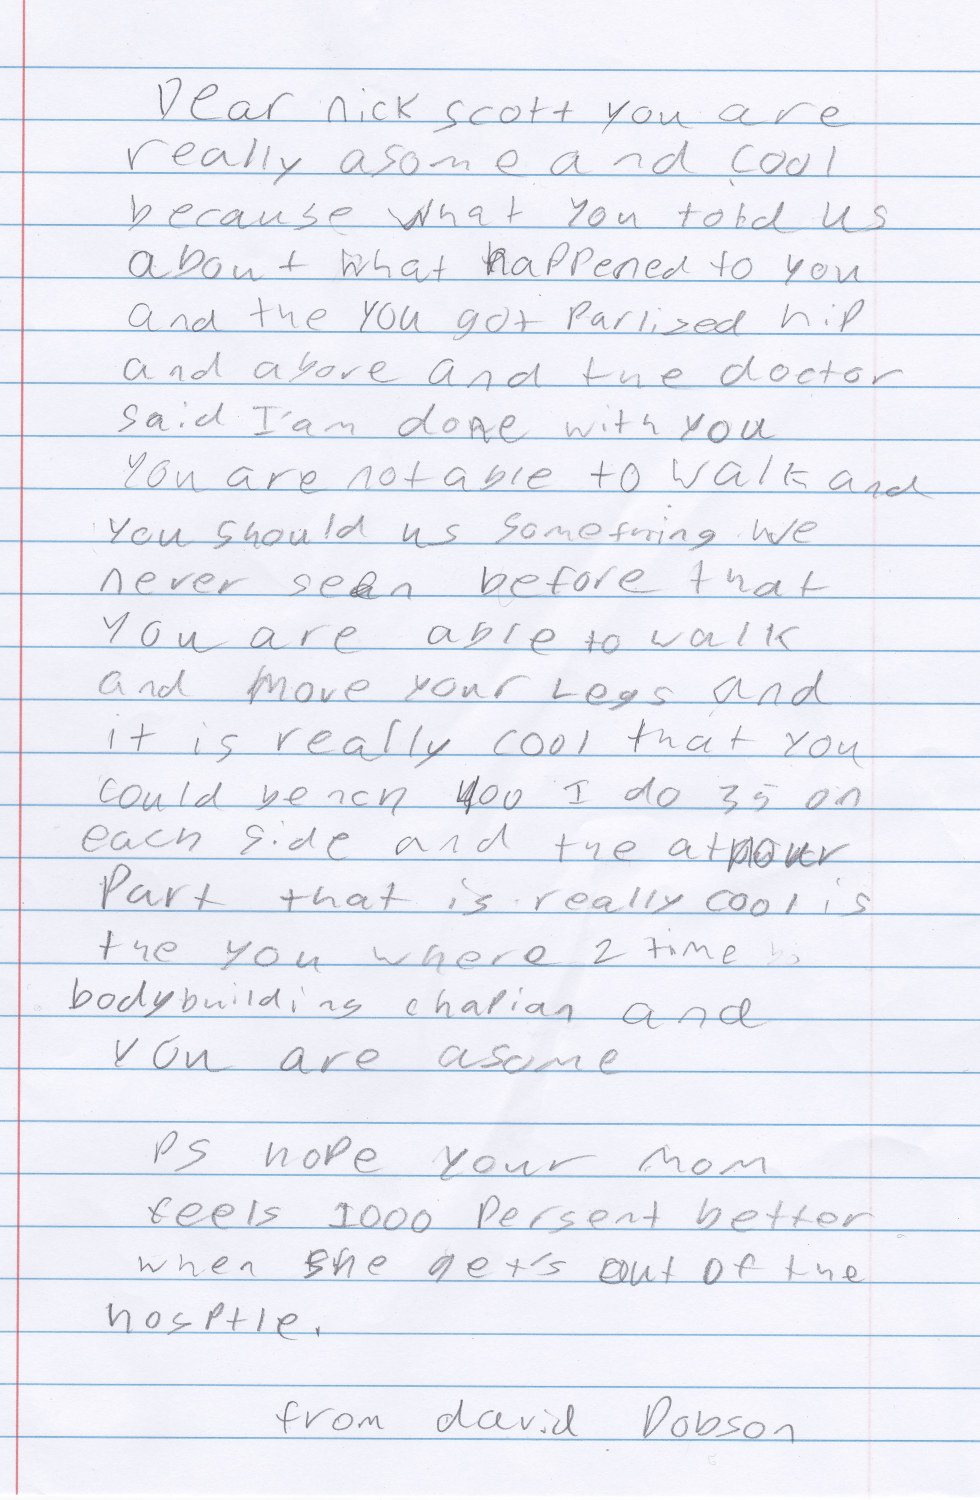 Dear nick scott you are
really asome and cool
because what you told us
about what happened to you
and the you got Parlised hip
and above and the doctor
said I'am done with you
you are not able to walk and
you should us something we
never seen before that
you are able to walk
and move your Legs and
it is really cool that you
could bench 400 I do 35 on
each side and the
Part that is really cool is
the you where 2 time
bodybuilding chapian and
you are asome
PS hope your mom
feels 1000 Persent better
when she get's out of the
hosptle.
from david Dobson